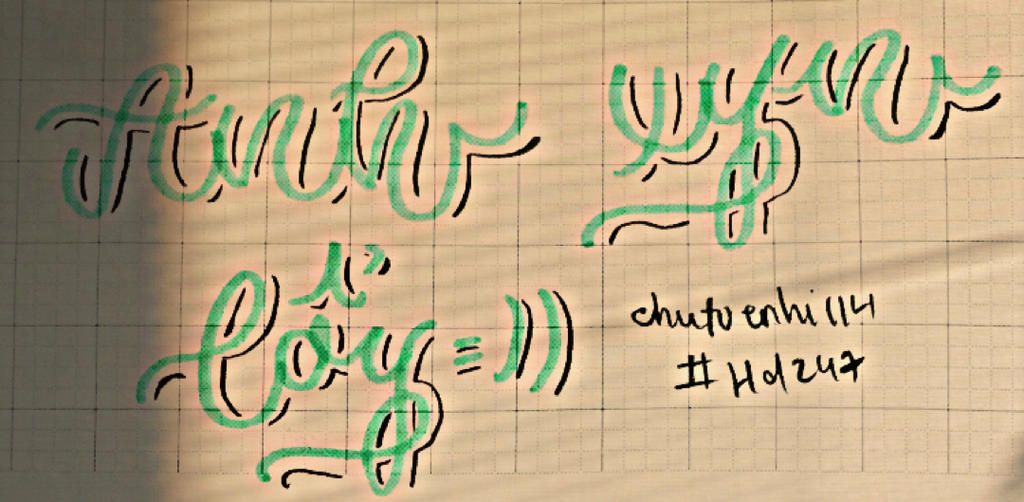 Anh uyn
≡)))
chutuenhi114
#Hd247